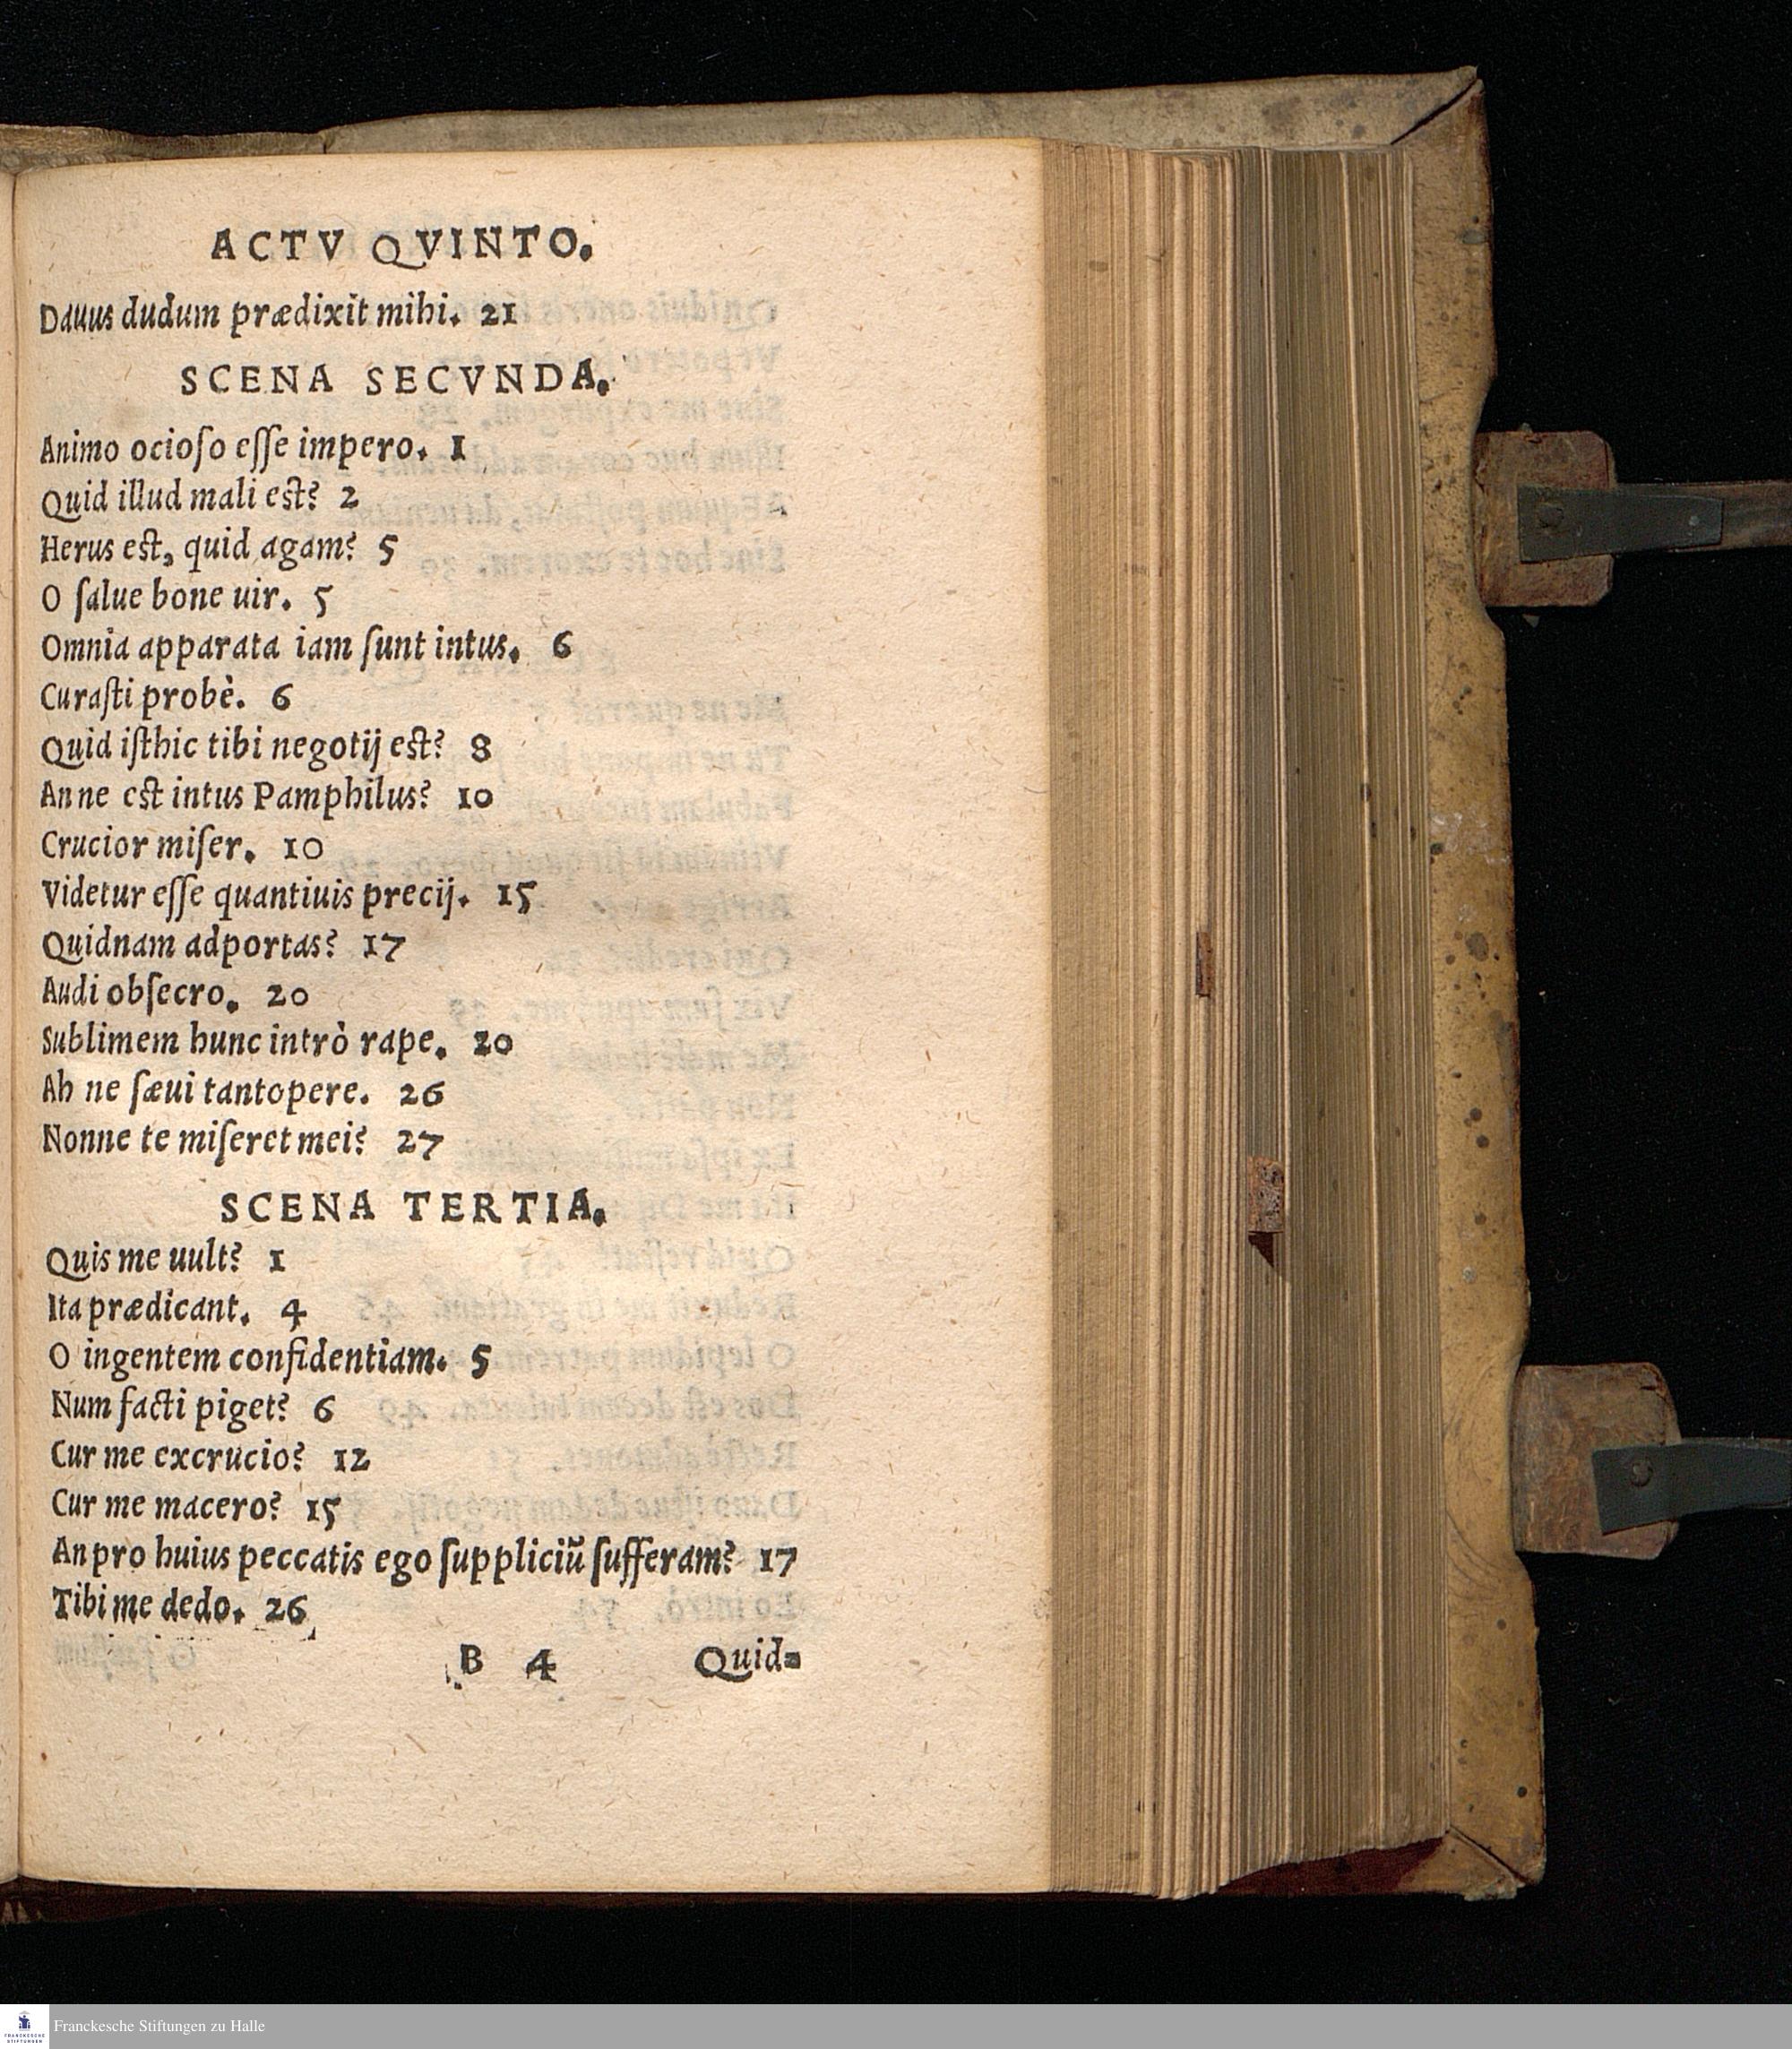 ACTV QVINTO.
Dauus dudum prædixit mihi. 21
SCENA SECVNDA.
Animo ocioſo eſſe impero. 1
Quid illud mali eſt? 2
Herus eſt, quid agam? 5
O ſalue bone uir. 5
Omnia apparata iam ſunt intus. 6
Curaſti probè. 6
Quid iſthic tibi negotij eſt? 8
An ne eſt intus Pamphilus? 10
Crucior miſer. 10
Videtur eſſe quantiuis precij. 15
Quidnam adportas? 17
Audi obſecro. 20
Sublimem hunc intrò rape. 20
Ah ne ſæui tantopere. 26
Nonne te miſeret mei? 27
SCENA TERTIA.
Quis me uult? 1
Ita prædicant. 4
O ingentem confidentiam. 5
Num facti piget? 6
Cur me excrucio? 12
Cur me macero? 15
An pro huius peccatis ego ſuppliciũ ſufferam? 17
Tibi me dedo. 26
B 4 Quid=
FRANCKESCHE STIFTUNGEN
Franckesche Stiftungen zu Halle